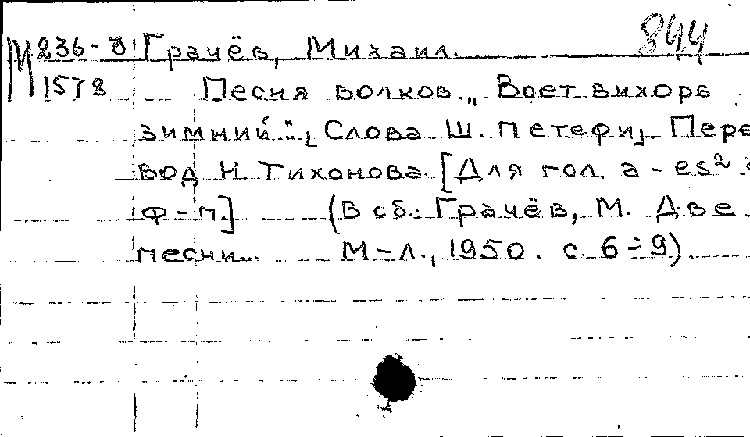 844
М 236-8 Грачёв, Михаил.
1578 Песня волков. „Воет вихорь
зимний“, Слова Ш. Петефи, Пере
вод Н. Тихонова. [Для гол. a - es²
ф-п.] (В сб.: Грачёв, М. Две
песни... М-Л., 1950. с. 6-9).